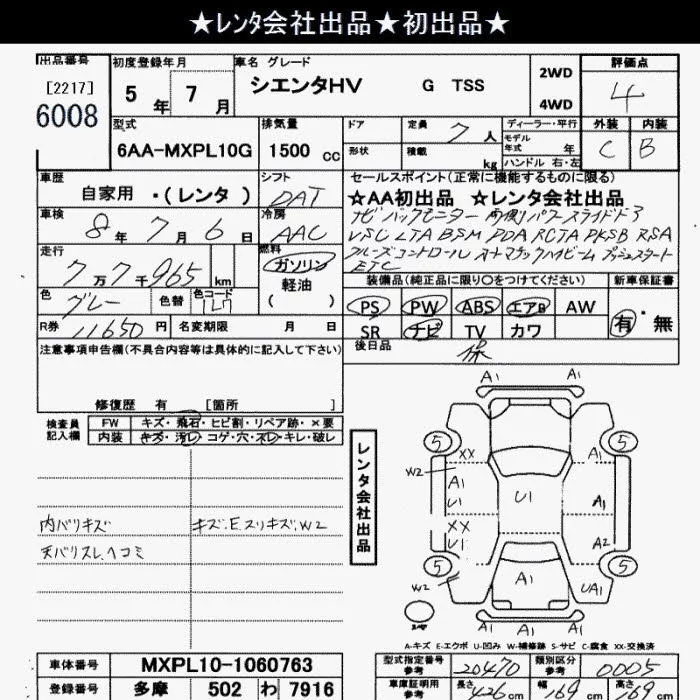 ★レンタ会社出品★初出品★
出品番号 初度登録年月 車名 グレード 2WD 評価点
[2217] 5年 7月 シエンタHV G TSS 4
6008 4WD
型式 排気量 ドア 定員 7人 ディーラー・平行 外装 内装
6AA-MXPL10G 1500 cc 形状 積載 kg モデル年式 年 C B
ハンドル 右・左
車歴 シフト セールスポイント(正常に機能するものに限る)
自家用 ・(レンタ) DAT ☆AA初出品 ☆レンタ会社出品
車検 冷房 ナビ バックモニター 両側パワースライドドア
8年 7月 6日 AAC VSC LTA BSM PDA RCTA PKSB RSA
走行 燃料 クルーズコントロール オートマチックハイビーム プッシュスタート
7万7千965 km ガソリン ETC
軽油
( )
装備品(純正品に限り○をつけてください) 新車保証書
色 グレー 色替 色コード 1L7
PS PW ABS エアB AW 有・無
R券 11650円 名変期限 月 日 SR ナビ TV カワ
注意事項申告欄(不具合内容等は具体的に記入して下さい) 後日品 保
修復歴 有 [箇所 ]
検査員記入欄 FW キズ・飛石・ヒビ割・リペア跡・×要
内装 キズ・汚レ・コゲ・穴・スレ・キレ・破レ
レンタ会社出品
内バリキズ キズ.E.スリキズ.W2
天バリスレ.ヘコミ
A1 A1
5 5
XX A1
W2
A1 U1 A1
U1
XX
U1 A2
5 5
W2 A1 UA1
A1 A1 A1
A-キズ E-エクボ U-凹み W-補修跡 S-サビ C-腐食 XX-交換済
車体番号 MXPL10-1060763 型式指定番号参考 20470 類別区分参考 0005
登録番号 多摩 502 わ 7916 車庫証明用参考 長さ 426 cm 幅 169 cm 高さ 169 cm